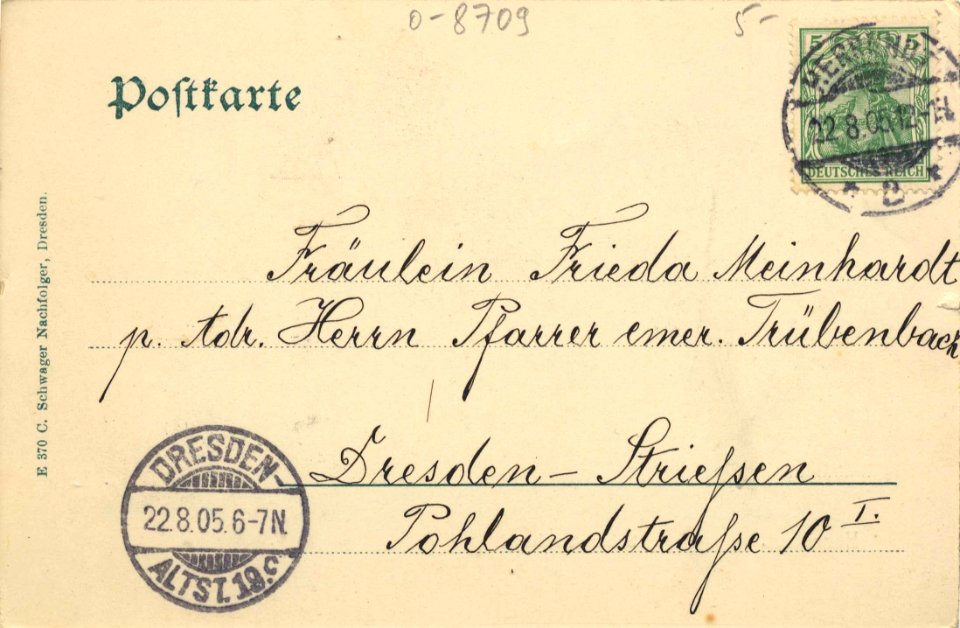 0-8709 5-
Postkarte
5 5
22.8.05.12-1N.
DEUTSCHES REICH
* 2 *
Fräulein Frieda Meinhardt
p. Adr. Herrn Pfarrer emer. Trübenbach
Dresden-Strießen
Pohlandstraße 10 I.
DRESDEN-
22.8.05.6-7N.
ALTST. 19.c
E 370 C. Schwager Nachfolger, Dresden.